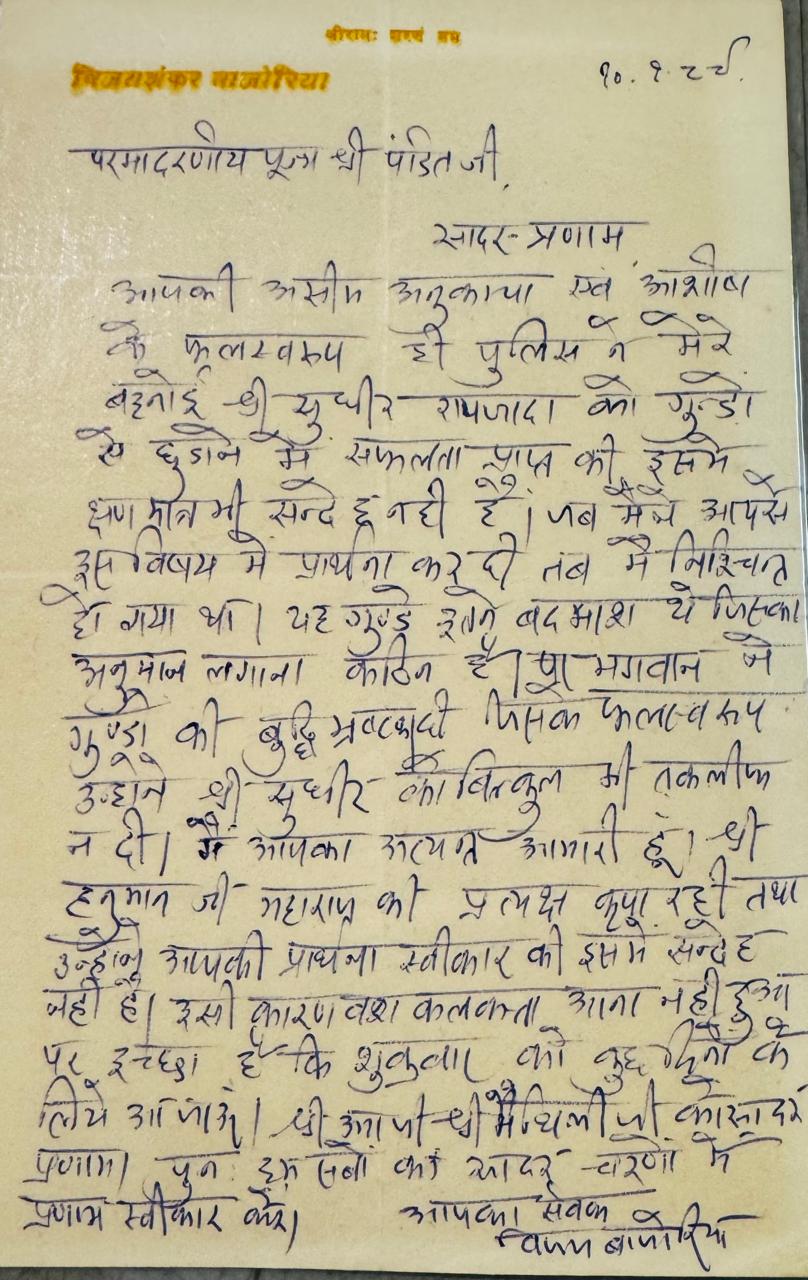 श्रीरामः शरणं मम
विजयशंकर बाजोरिया
१०.१.८९.
परमादरणीय पूज्य श्री पंडित जी,
सादर-प्रणाम,
आपकी असीम अनुकम्पा एवं आशीष
के फलस्वरूप ही पुलिस ने मेरे
बहनोई श्री सुधीर रायजादा को गुन्डो
से छुडाने में सफलता प्राप्त की इसमे
क्षण मात्र भी सन्देह नही है। जब मैंने आपसे
इस विषय मे प्रार्थना कर दी तब मैं निश्चिन्त
हो गया था। यह गुण्डे इतने बदमाश थे जिसका
अनुमान लगाना कठिन है। भगवान ने
गुण्डो की बुद्धि भ्रष्ट दी जिसके फलस्वरूप
उन्होने श्री सुधीर को बिल्कुल भी तकलीफ
न दी। मैं आपका अत्यन्त आभारी हूं। श्री
हनुमान जी महाराज की प्रत्यक्ष कृपा रही तथा
उन्होने आपकी प्रार्थना स्वीकार की इसमे सन्देह
नही है। इसी कारणवश कलकत्ता आना नही हुआ
पर इच्छा है कि शुक्रवार को कुछ दिनो के
लिये आ जाऊं। श्री श्री मैथिली जी को सादर
प्रणाम। पुनः हम सबो का सादर चरणो मे
प्रणाम स्वीकार करे। आपका सेवक
विजय बाजोरिया